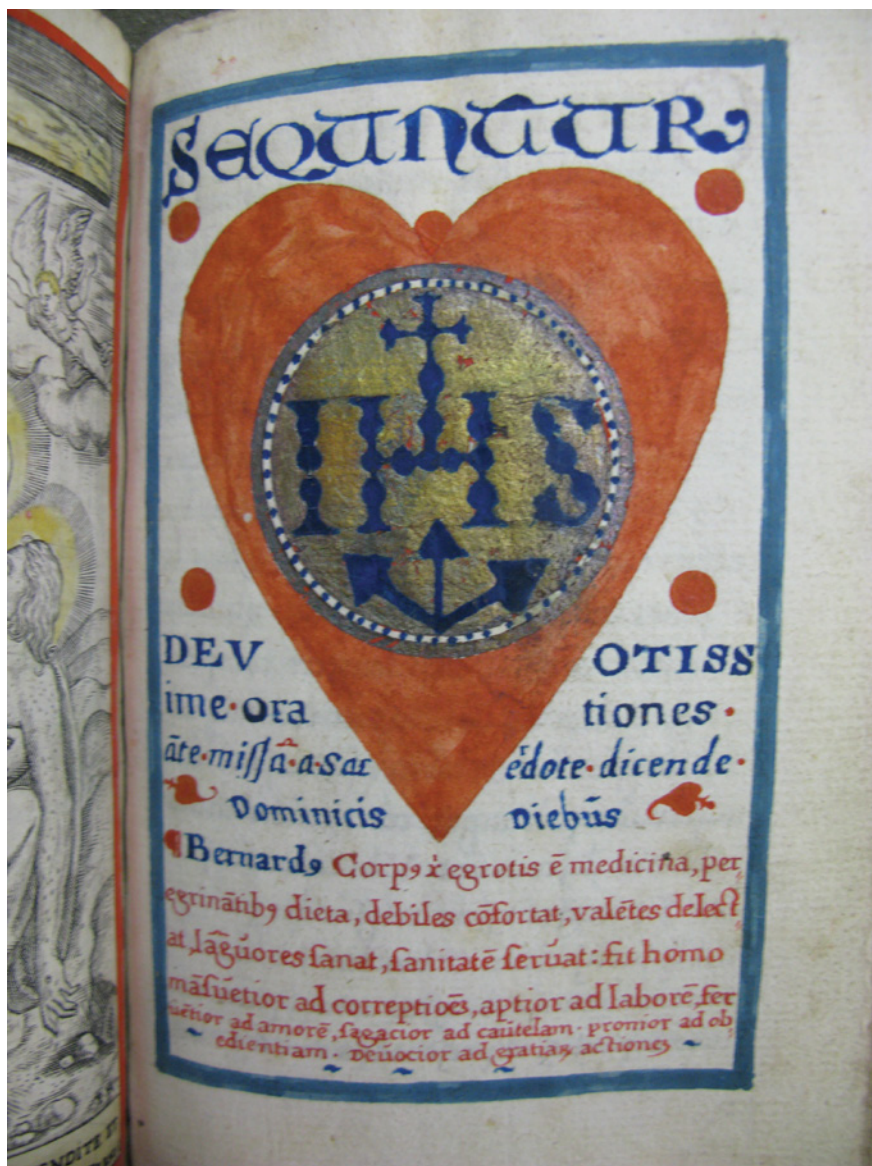 SEQUNTUR
IHS
DEV OTISS
ime·ora tiones·
āte·missā·a·sac ẻdote·dicende·
Dominicis Diebūs
Bernardꝯ Corpꝯ x̄ egrotis ē medicina, per
egrinātibꝯ dieta, debiles cōfortat, valētes delect
at, lāguores sanat, sanitatē seruat: fit homo
māsuetior ad correptiōēs, aptior ad laborē, fer
uētior ad amorē, sagacior ad cautelam· promior ad ob
edientiam· deuocior ad gratiaꝝ actiones
ENDITE ET